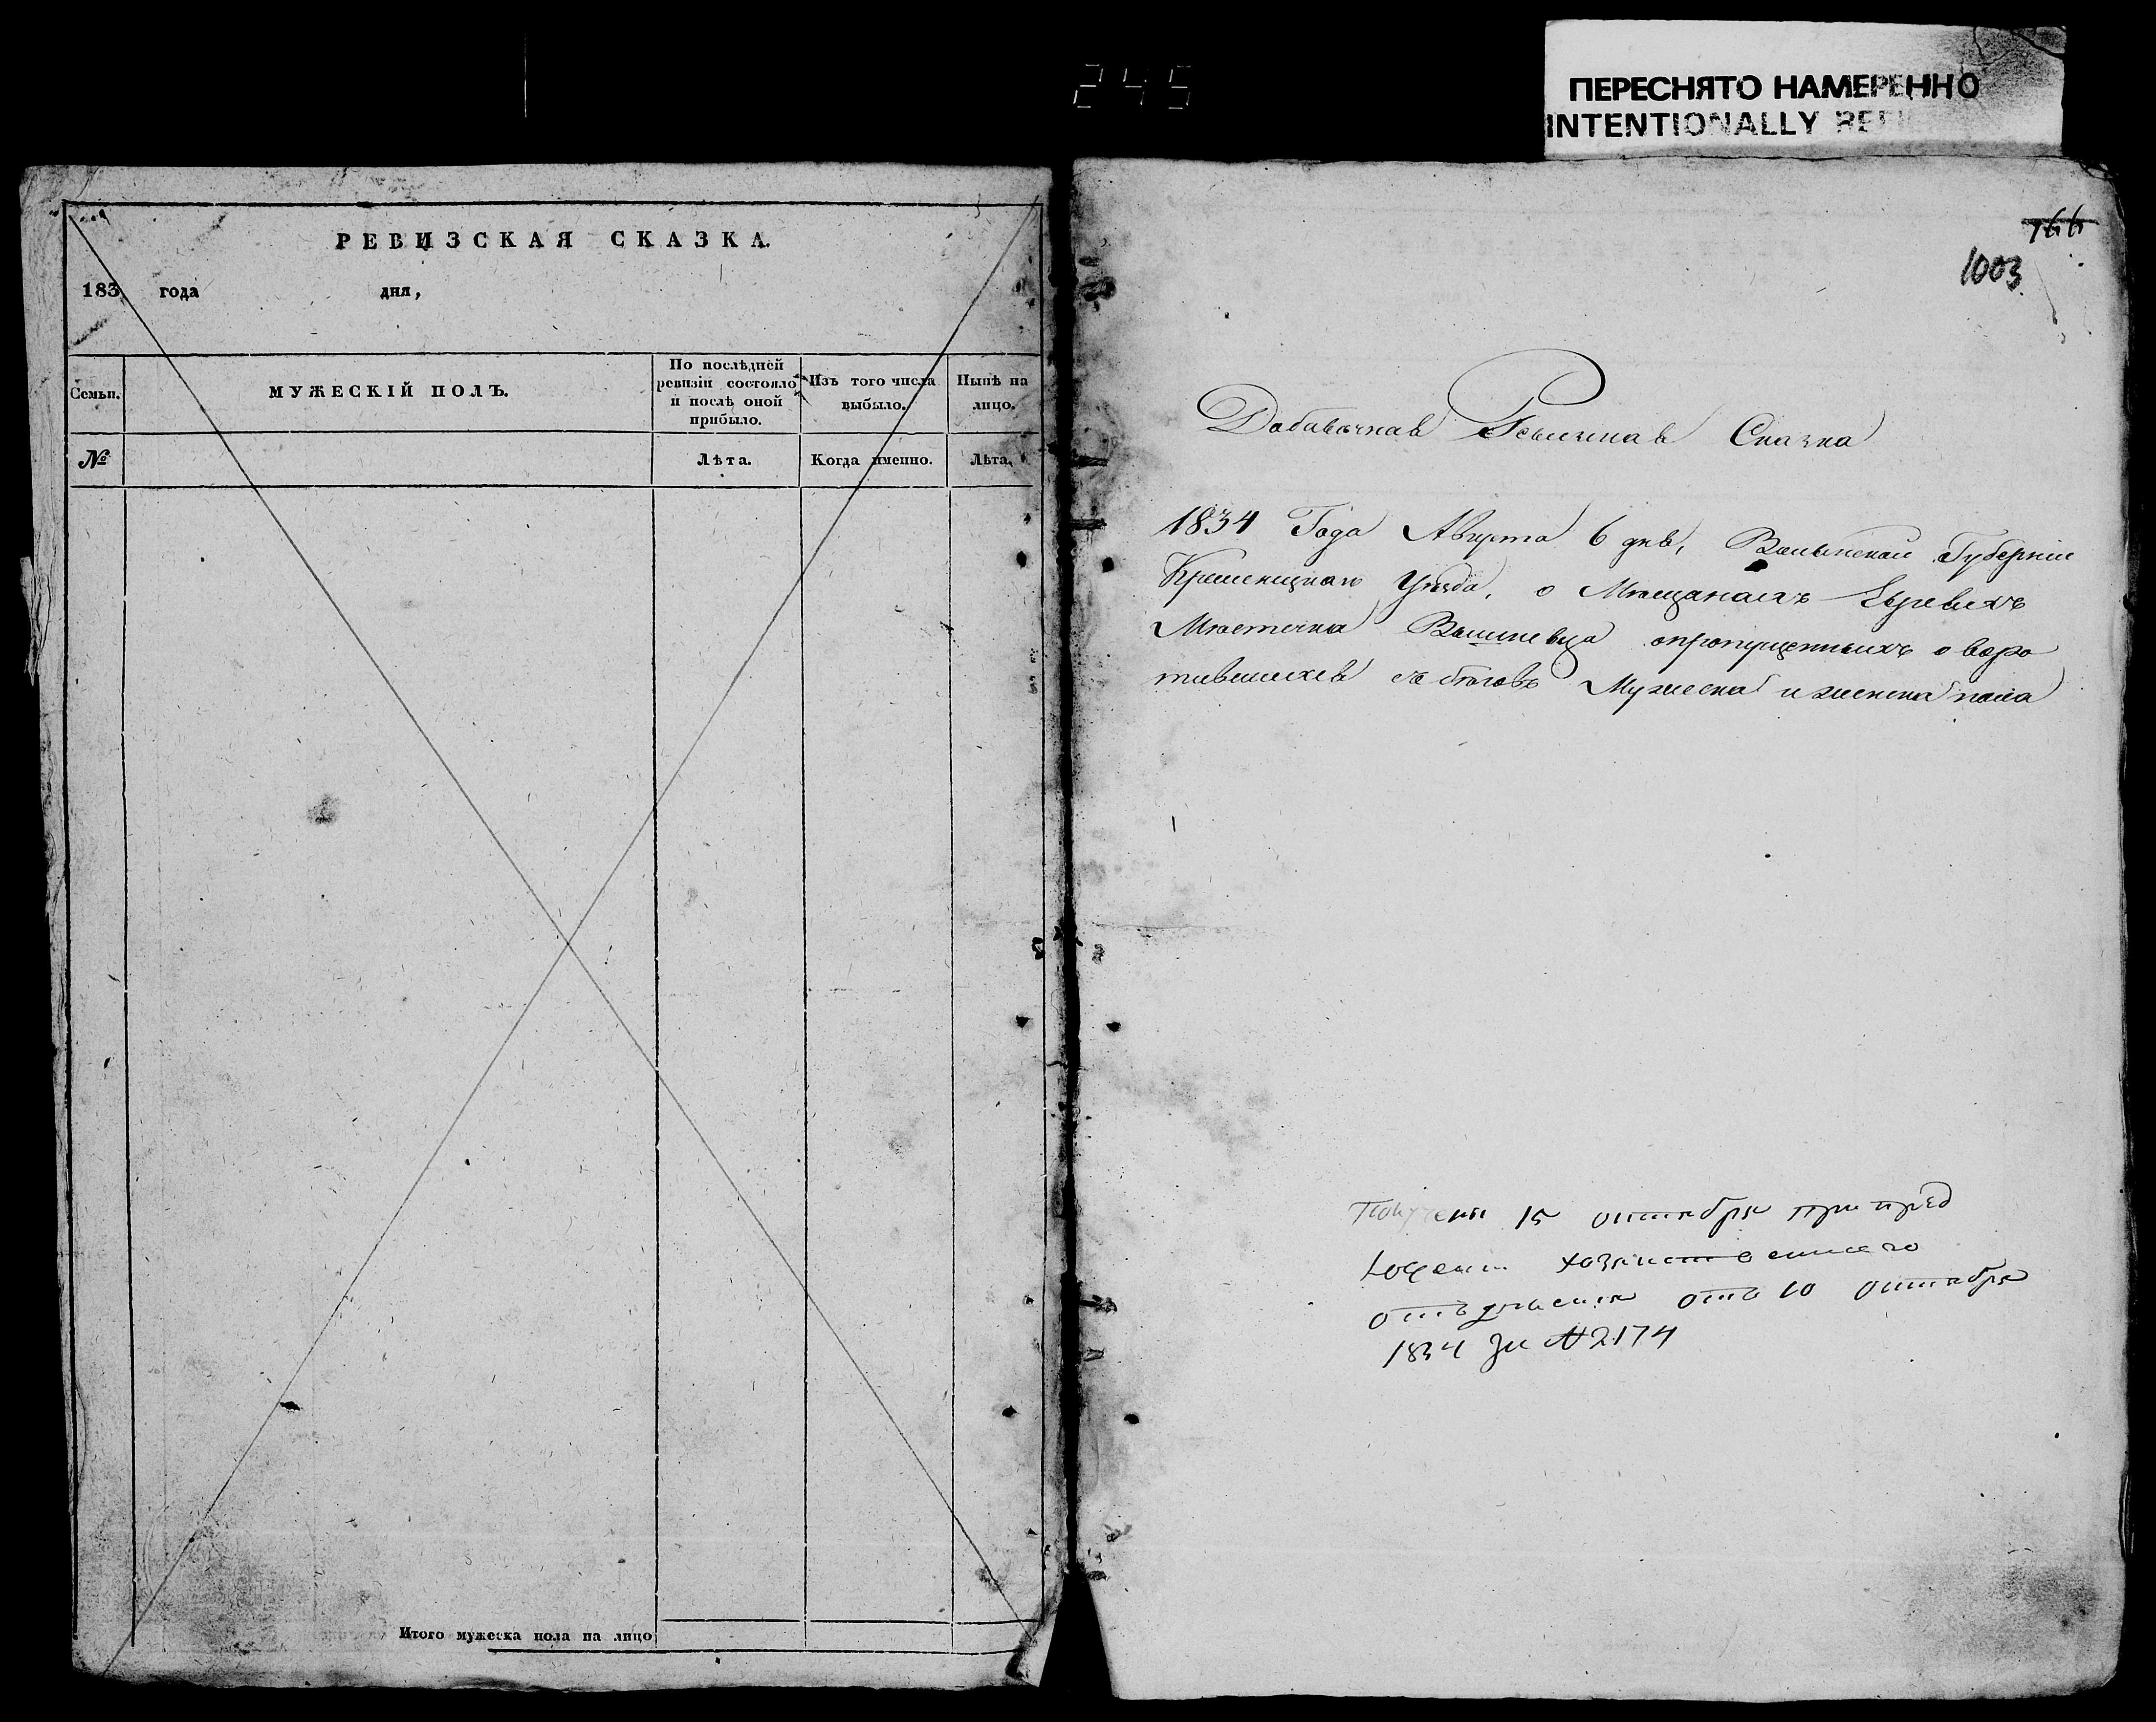 245
ПЕРЕСНЯТО НАМЕРЕННО
INTENTIONALLY
РЕВИЗСКАЯ СКАЗКА.
183 года дня,
Семьи.
МУЖЕСКІЙ ПОЛЪ.
По послѣдней ревизіи состояло и послѣ оной прибыло.
Изъ того числа выбыло.
Нынѣ на лицо.
№
Лѣта.
Когда именно.
Лѣта.
Итого мужеска пола на лицо
766
1003
Добавочная Ревизская Сказка
1834 Года Августа 6 дня, Волынской Губернии
Кременецкаго Уѣзда, о Мѣщанахъ Евреяхъ
Мѣстечка Вышневца о пропущенныхъ о воро
тившихся съ бѣговъ Мужеска и женска пола
Получена 15 октября при пред
ложении хозяиственнаго
отделения отъ 10 октября
1834 за №2174